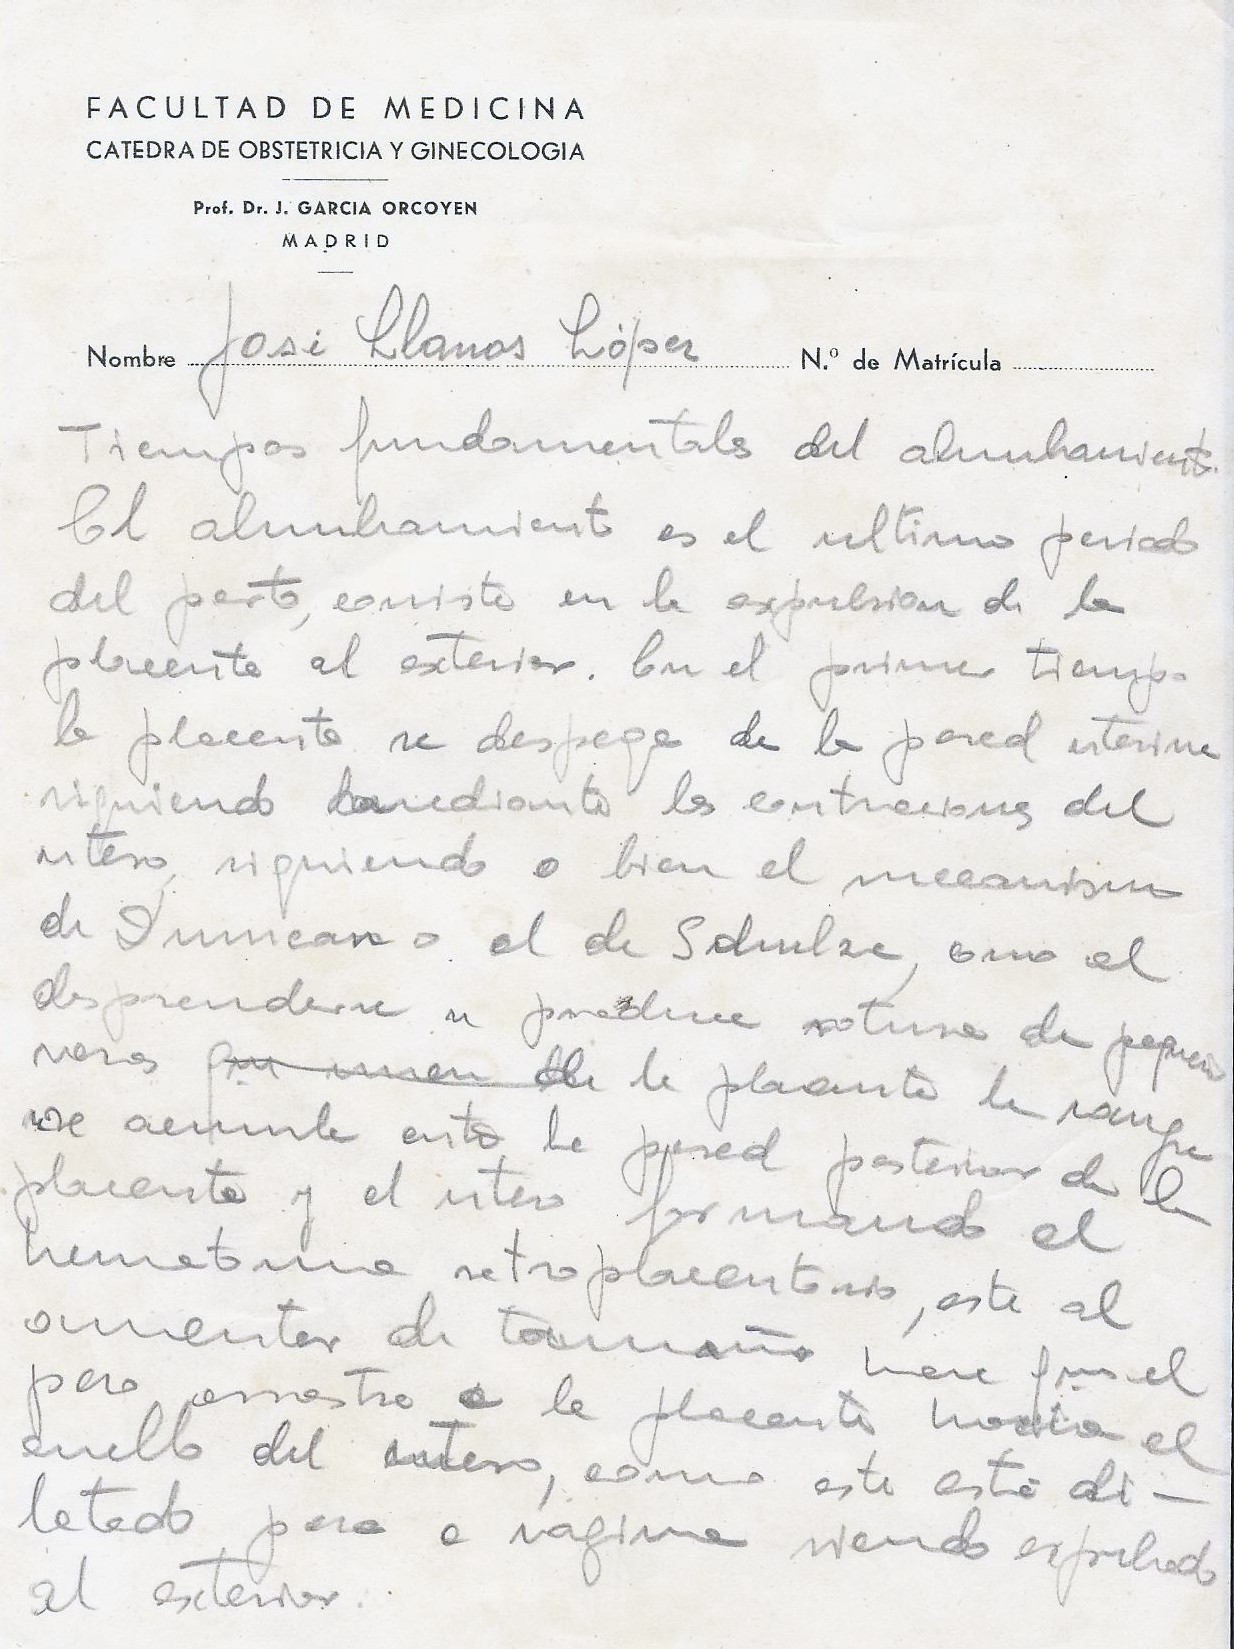 FACULTAD DE MEDICINA
CATEDRA DE OBSTETRICIA Y GINECOLOGIA
Prof. Dr. J. GARCIA ORCOYEN
MADRID
Nombre José Llanos López N.º de Matrícula
Tiempos fundamentales del alumbramiento.
El alumbramiento es el ultimo periodo
del parto, consiste en la expulsion de la
placenta al exterior. En el primer tiempo
la placenta se despega de la pared uterina
siguiendo mediante las contraciones del
utero, siguiendo o bien el mecanismo
de Dunncan o el de Schulze, como al
desprenderse se produce rotura de pequeños
vasos que unen de la placenta la sangre
se acumula entre la pared posterior de la
placenta y el utero formando el
hematoma retroplacentario, este al
aumentar de tamaño hace que el
peso arrastre a la placenta hacia el
cuello del utero, como este está di-
latado pasa a vagina siendo expulsado
al exterior.